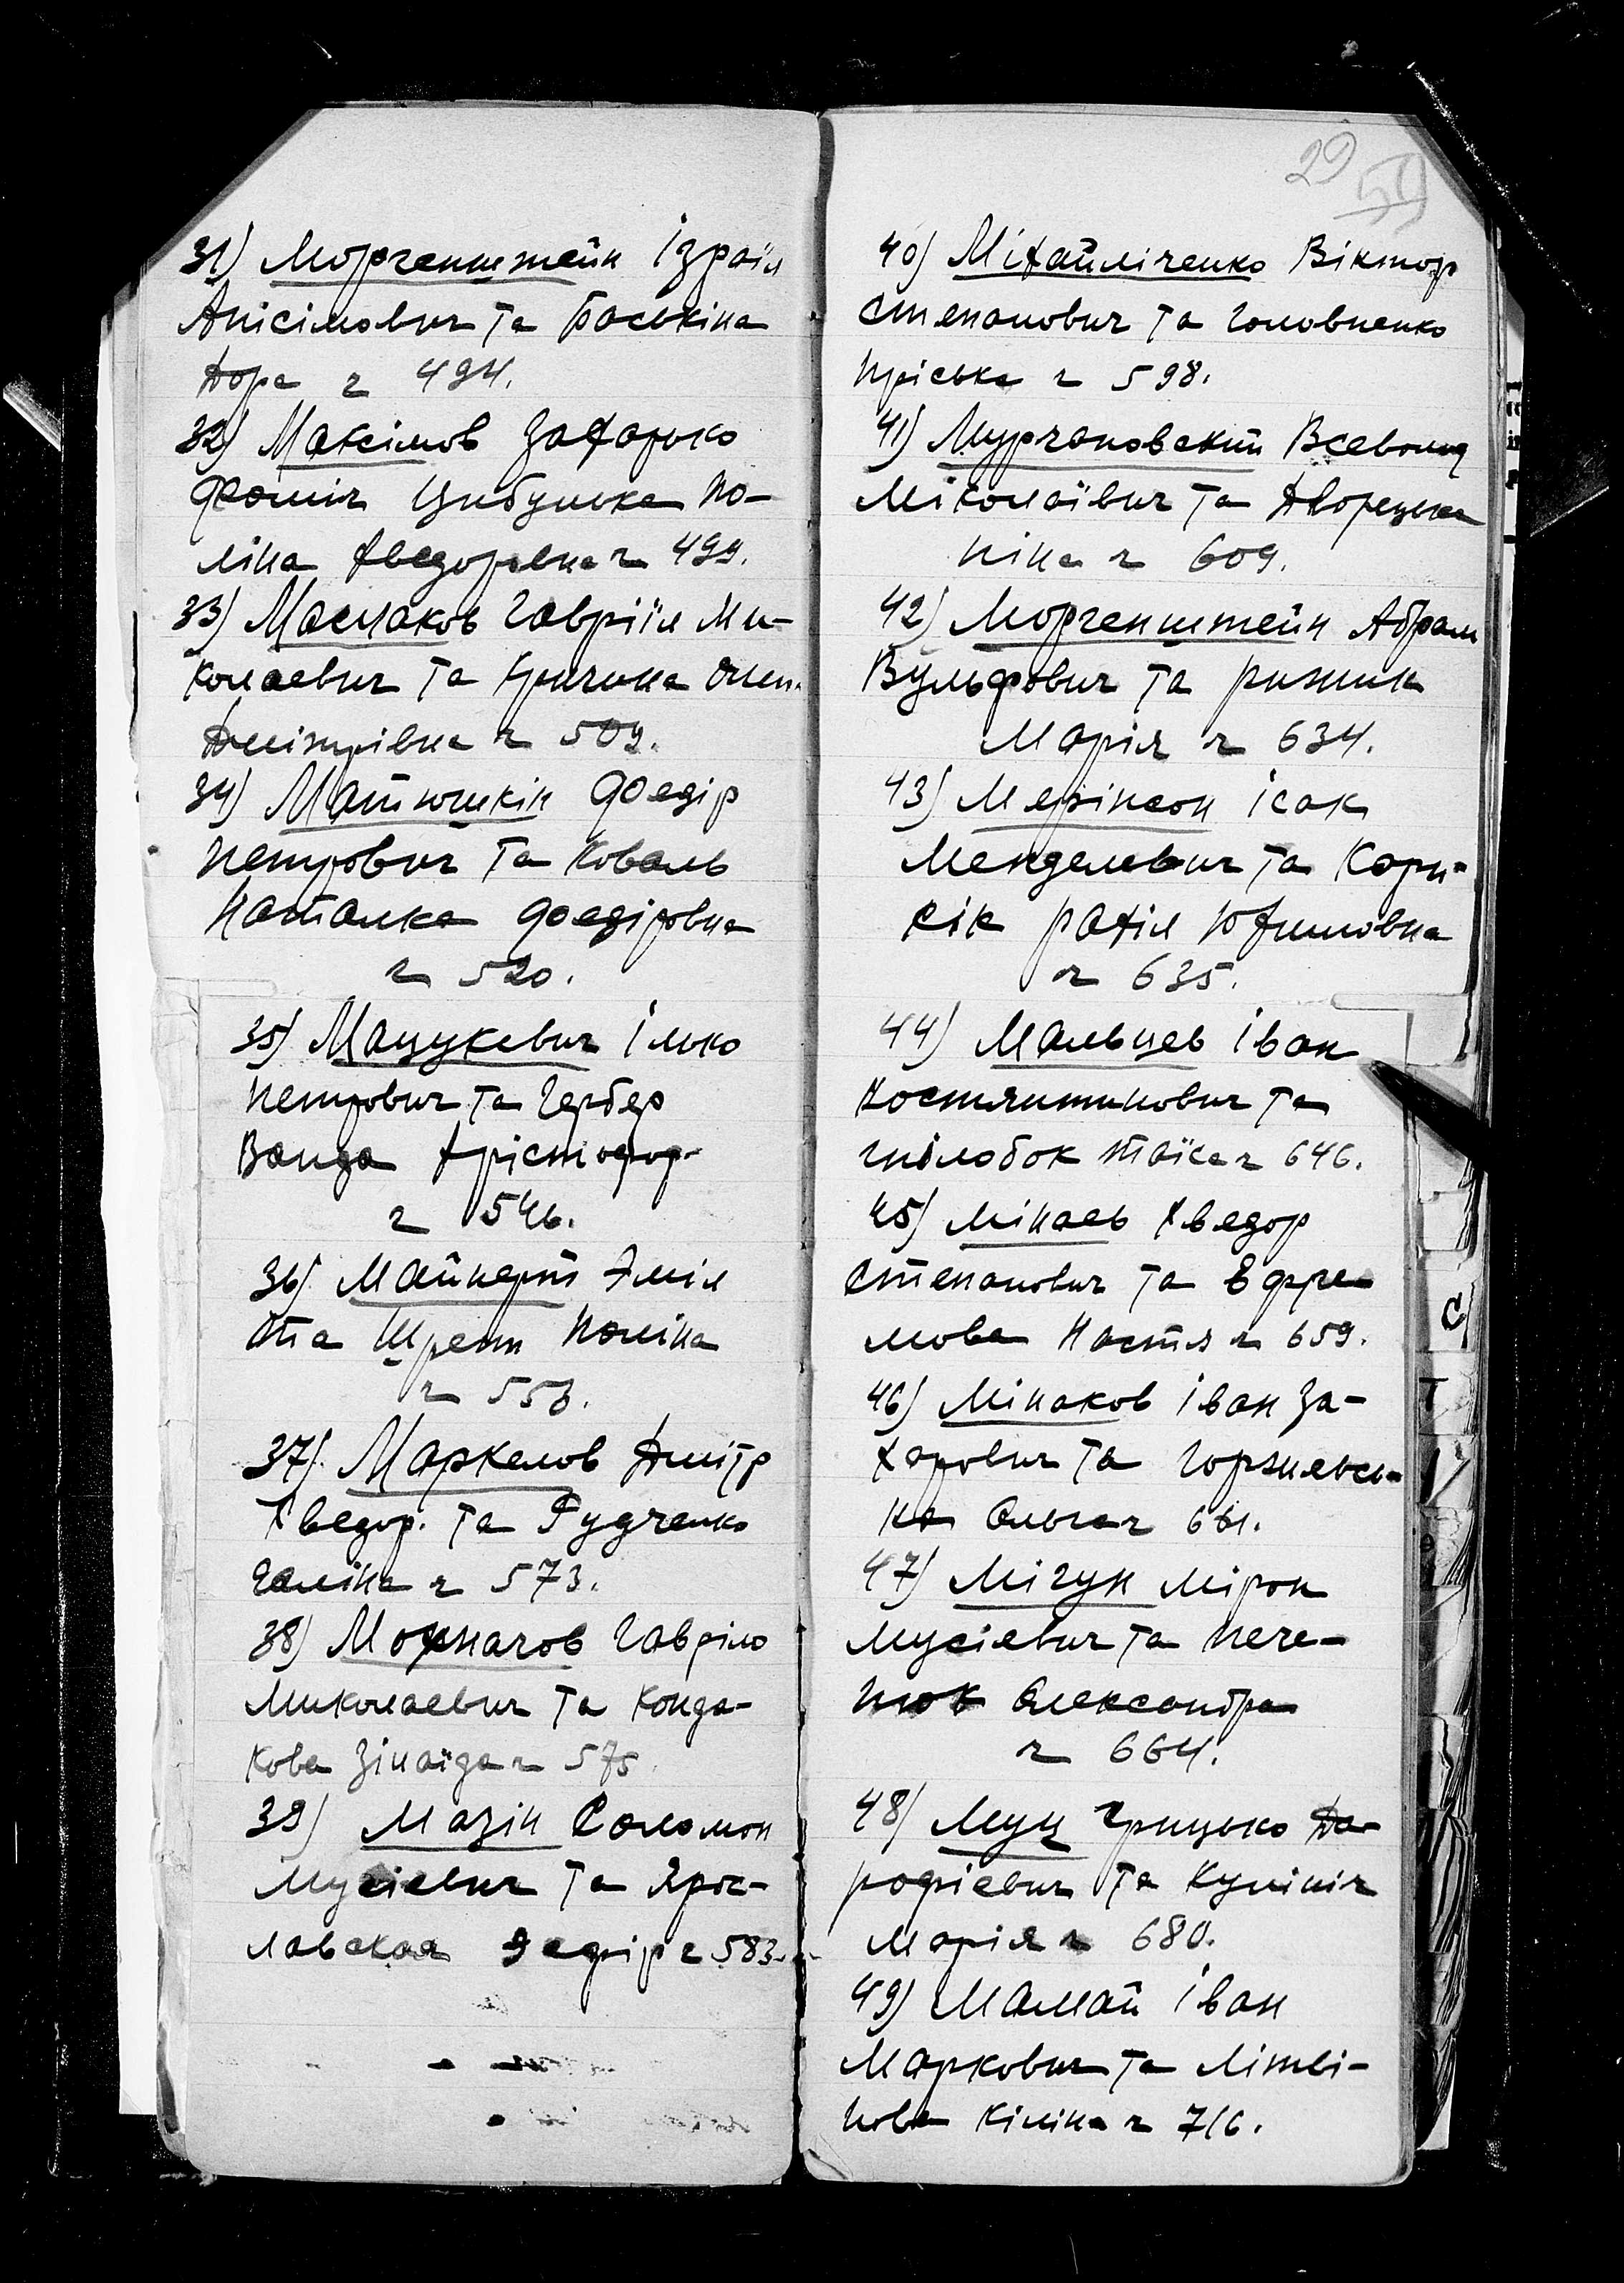 31) Моргенштейн Ізраїл
Анісімович та Баськіна
Дора ч 494.
32) Максімов Захарько
Фоміч Цибулька По-
ліна Хведоровна ч 499.
33) Маслаков Гавріїл Ми-
колаевич та Кричина Олен.
Дмітрівна ч 509.
34) Матюшкін Фоедір
Петрович та Коваль
Наталка Фоедіровна
ч 520.
35) Мацукевич Ілько
Петрович та Гербер
Ванда Хрістофор-
ч 546.
36) Майнерт Эміл
та Щренн Поліна
ч 553.
37) Маркелов Дмітр
Хведор. та Рудченко
Галіна ч 573.
38) Мохначов Гавріло
Миколаевич та Конда-
кова Зінаїда ч 575.
39) Мазін Соломон
Мусіевич та Ярос-
лавская Эсфір ч 583.
29
40) Міхайліченко Віктор
Степанович та Головненко
Пріська ч 598.
41) Мурчановський Всеволод
Міколаївич та Дворецька
Ніна ч 609.
42) Моргенштейн Абрам
Вульфович та Рижик
Марія ч 634.
43) Мерінсон Ісак
Менделевич та Кори-
сік Рахіл Юхимовна
ч 635.
44) Мальцев Іван
Костянтинович та
Гнілобок Таїса ч 646.
45) Мінаев Хведор
Степанович та Ефре-
мова Настя ч 659.
46) Мінаков Іван За-
харович та Горжельсь-
ка Ольга ч 661.
47) Мігун Мірон
Мусіевич та Пече-
нюк Олександра
ч 664.
48) Муц Грицько До-
рофіевич та Кулініч
Марія ч 680.
49) Мамай Іван
Маркович та Літві-
нова Кіліна ч 716.
С
Т